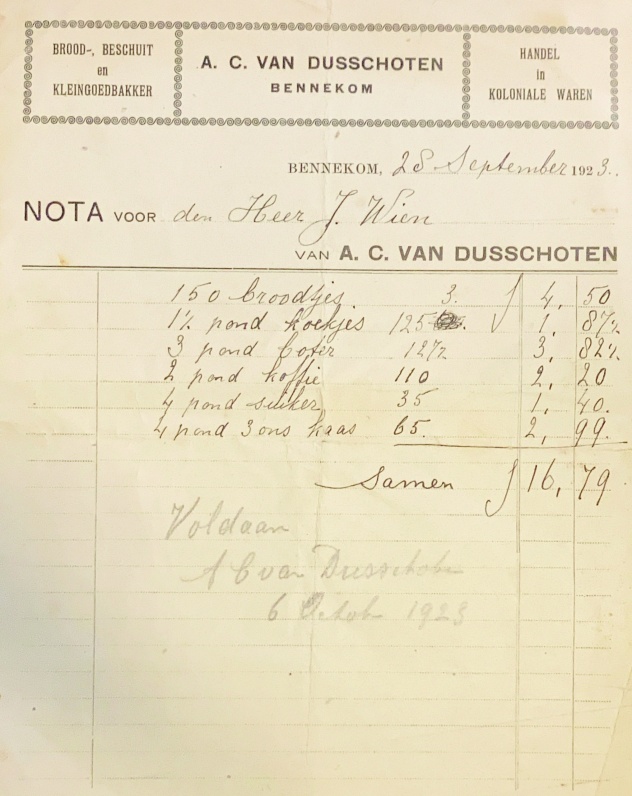 BROOD-, BESCHUIT
en
KLEINGOEDBAKKER
A. C. VAN DUSSCHOTEN
BENNEKOM
HANDEL
in
KOLONIALE WAREN
BENNEKOM, 28 September 1923.
NOTA VOOR den Heer J. Wien
VAN A. C. VAN DUSSCHOTEN
150 broodjes. 3. ƒ 4, 50
1½ pond koekjes 125 1, 87½
3 pond boter 127½ 3, 82½
2 pond koffie 110 2, 20
4 pond suiker 35 1, 40.
4 pond 3 ons kaas 65. 2, 99.
Samen ƒ 16, 79
Voldaan
A C van Dusschoten
6 Octob 1923